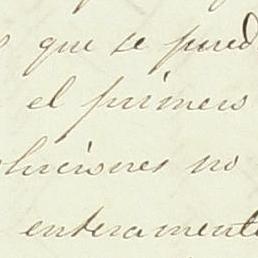 que se pued
el primero
luciones no
enteramente